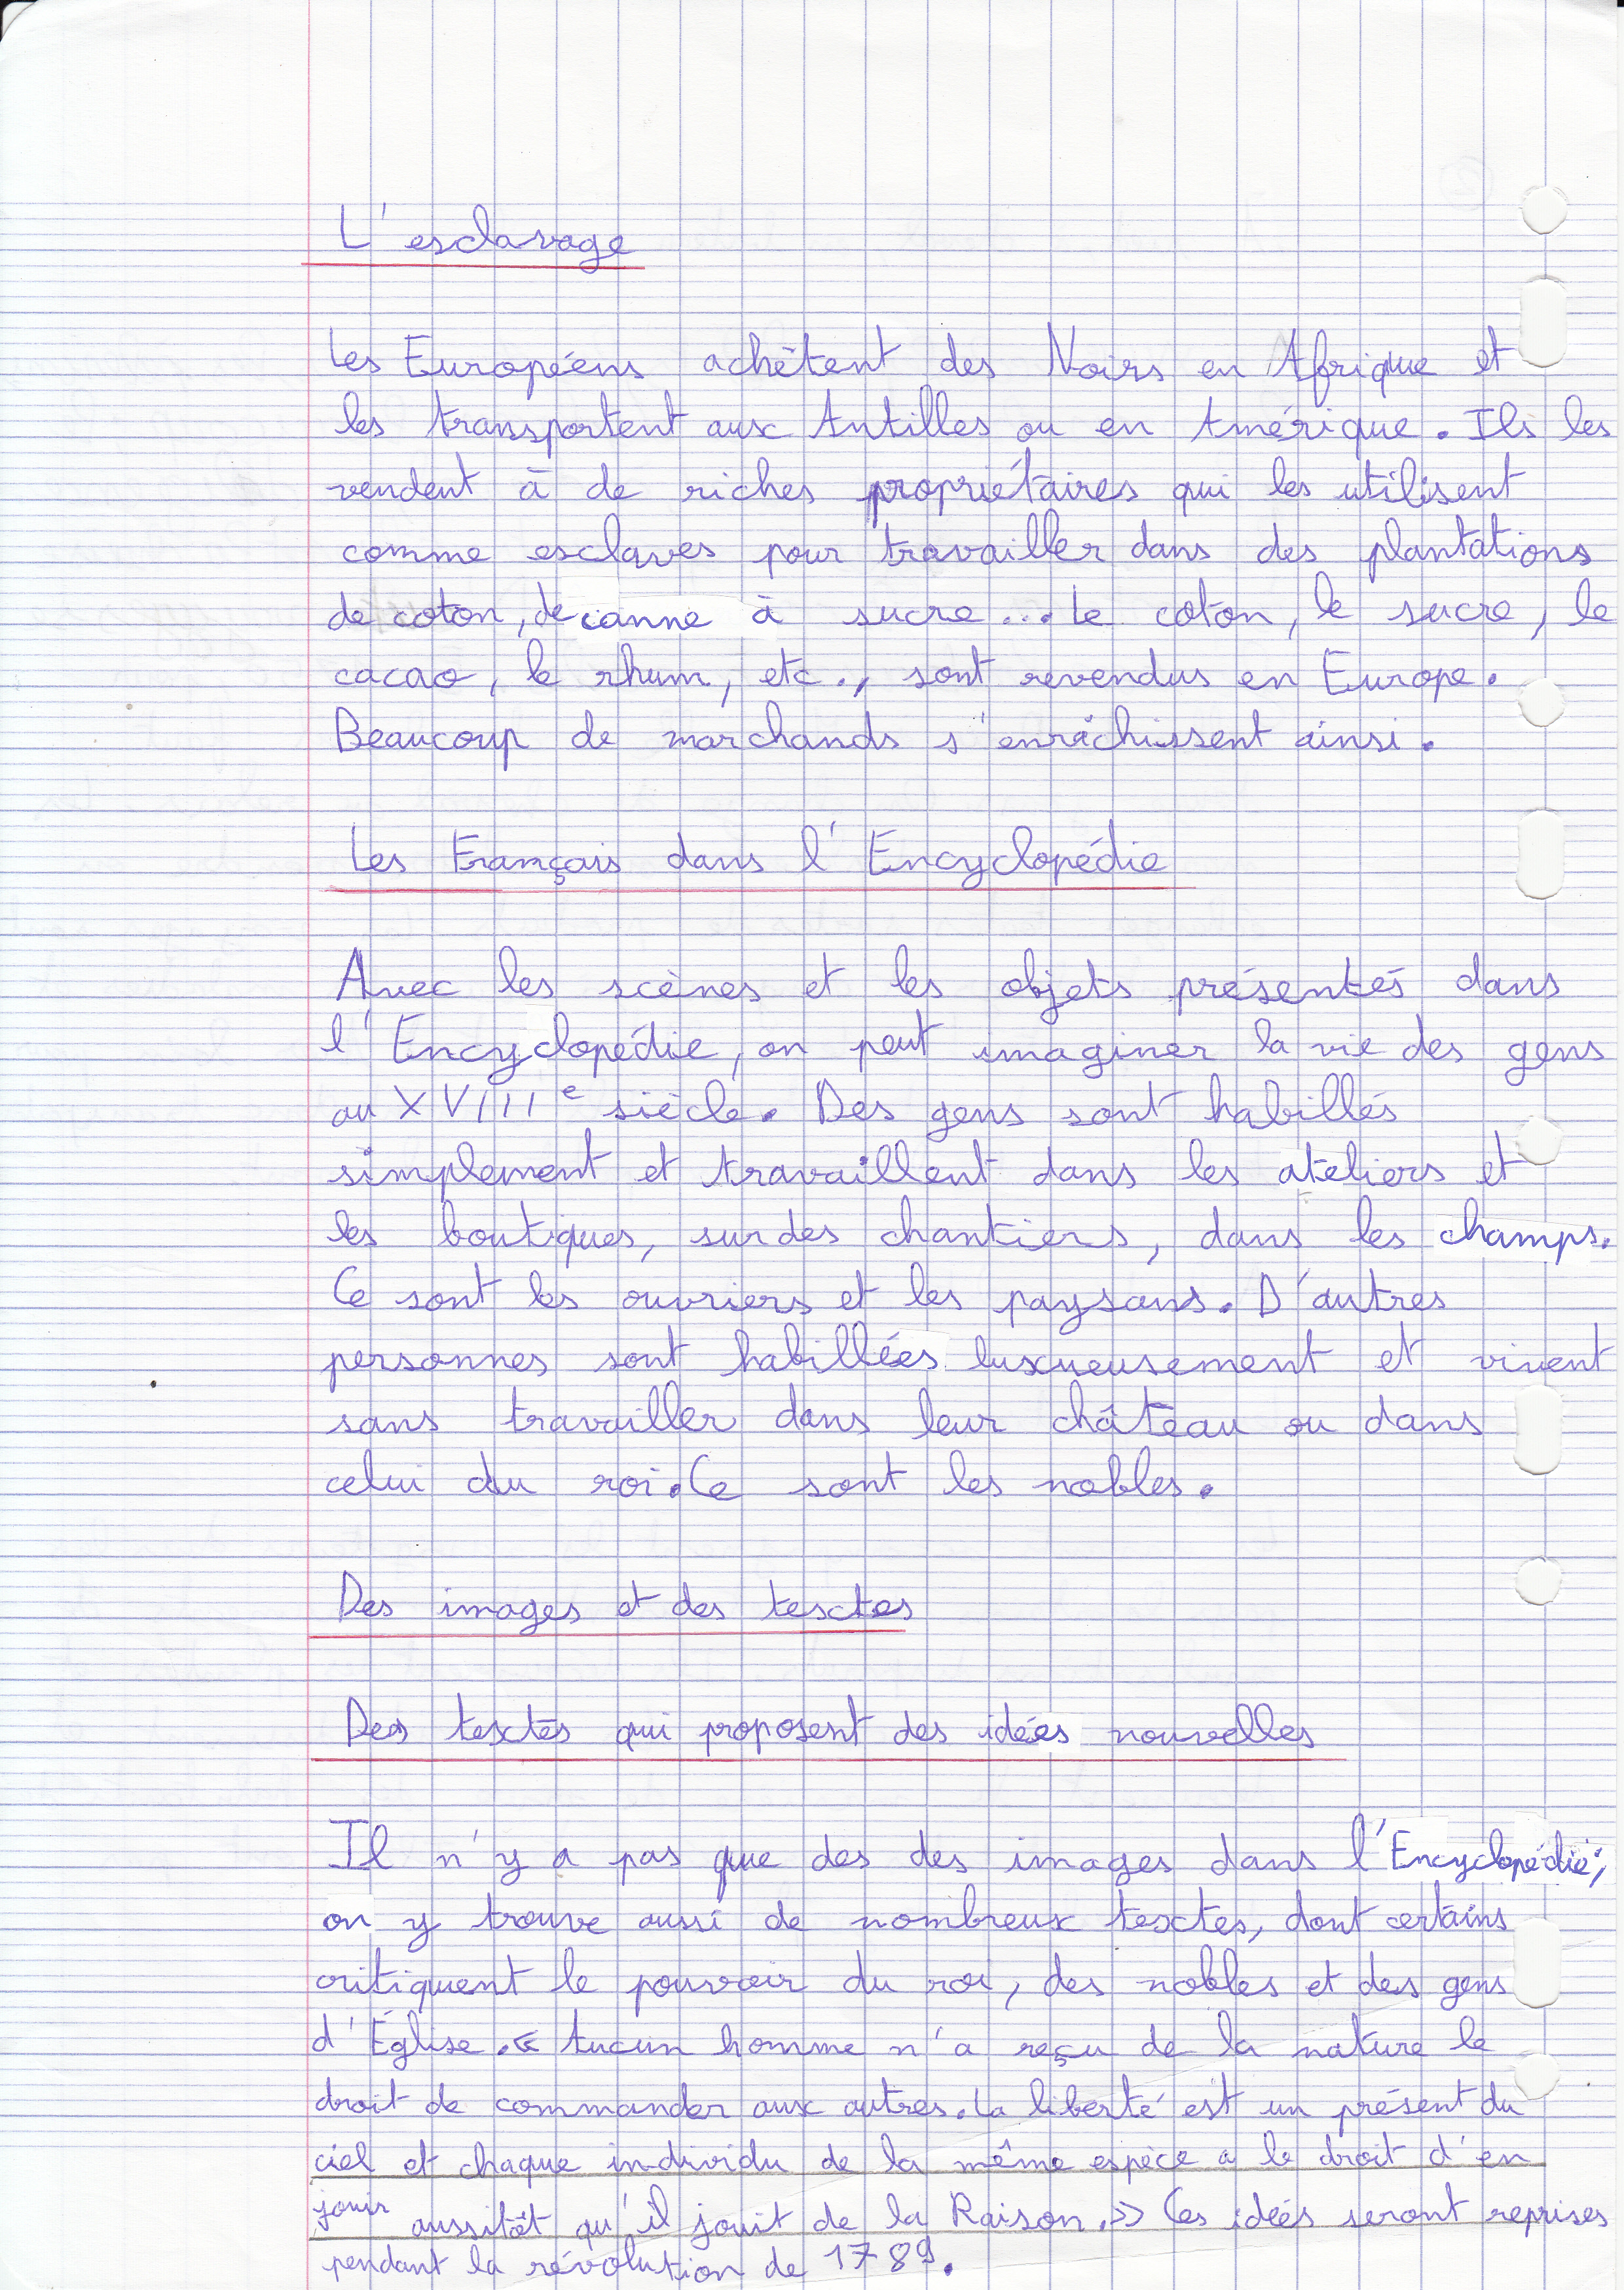 L'esclavage
Les Européens achètent des Noirs en Afrique et
les transportent aux Antilles ou en Amérique. Ils les
vendent à de riches propriétaires qui les utilisent
comme esclaves pour travailler dans des plantations
de coton, de canne à sucre... Le coton, le sucre, le
cacao, le rhum, etc., sont revendus en Europe.
Beaucoup de marchands s'enrichissent ainsi.
Les Français dans l'Encyclopédie
Avec les scènes et les objets présentés dans
l'Encyclopédie, on peut imaginer la vie des gens
au XVIIIe siècle. Des gens sont habillés
simplement et travaillent dans les ateliers et
les boutiques, sur des chantiers, dans les champs.
Ce sont les ouvriers et les paysans. D'autres
personnes sont habillées luxueusement et vivent
sans travailler dans leur château ou dans
celui du roi. Ce sont les nobles.
Des images et des textes
Des textes qui proposent des idées nouvelles
Il n'y a pas que des des images dans l'Encyclopédie;
on y trouve aussi de nombreux textes, dont certains
critiquent le pouvoir du roi, des nobles et des gens
d'Église. « Aucun homme n'a reçu de la nature le
droit de commander aux autres. La liberté est un présent du
ciel et chaque individu de la même espèce a le droit d'en
jouir aussitôt qu'il jouit de la Raison. » Ces idées seront reprises
pendant la révolution de 1789.